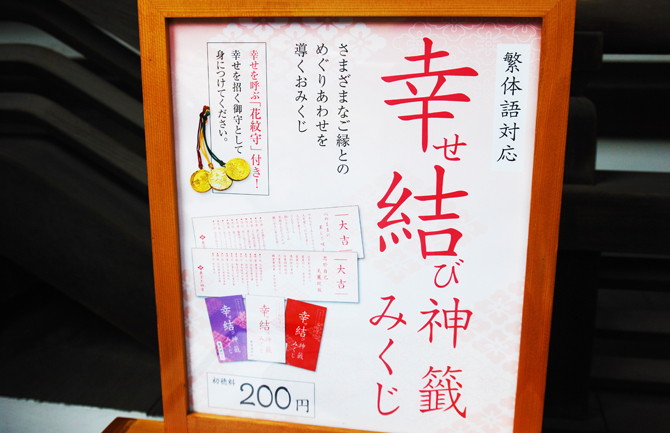 繁体語対応
幸せ結び神籤
みくじ
さまざまなご縁との
めぐりあわせを
導くおみくじ
幸せを呼ぶ「花紋守」付き！
幸せを招く御守として
身につけてください。
大吉
大吉
幸せ結び神籤
みくじ
幸せ結び神籤
みくじ
幸せ結び神籤
みくじ
初穂料
200円